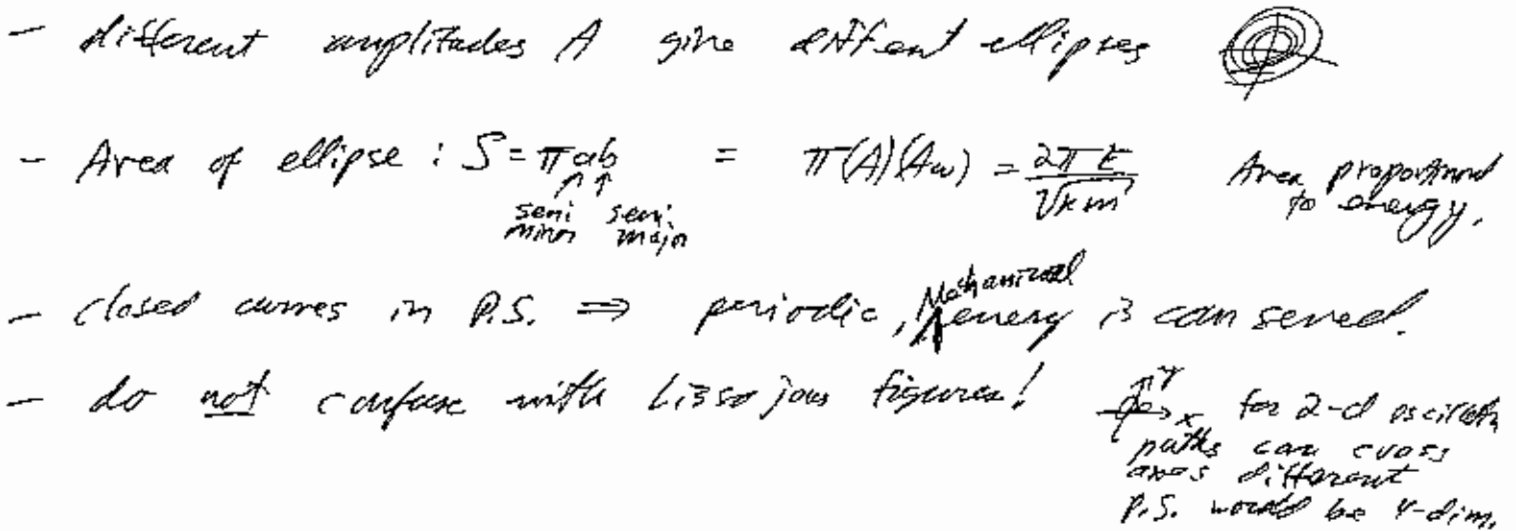 - different amplitudes A give different ellipses
- Area of ellipse : S = πab = π(A)(Aω) = 2πE/√km Area proportional to energy.
semi minor semi major
- closed curves in P.S. ⇒ periodic, Mechanical energy is conserved.
- do not confuse with Lissajous figures! y x for 2-d oscillator
paths can cross
axes different
P.S. would be 4-dim.